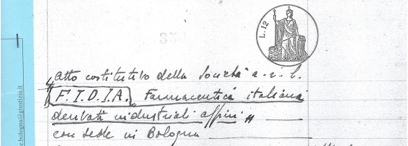 L. 12
Atto costitutivo della Società a r.l.
"F.I.D.I.A. Farmaceutici italiana
derivati industriali affini"
con sede in Bologna